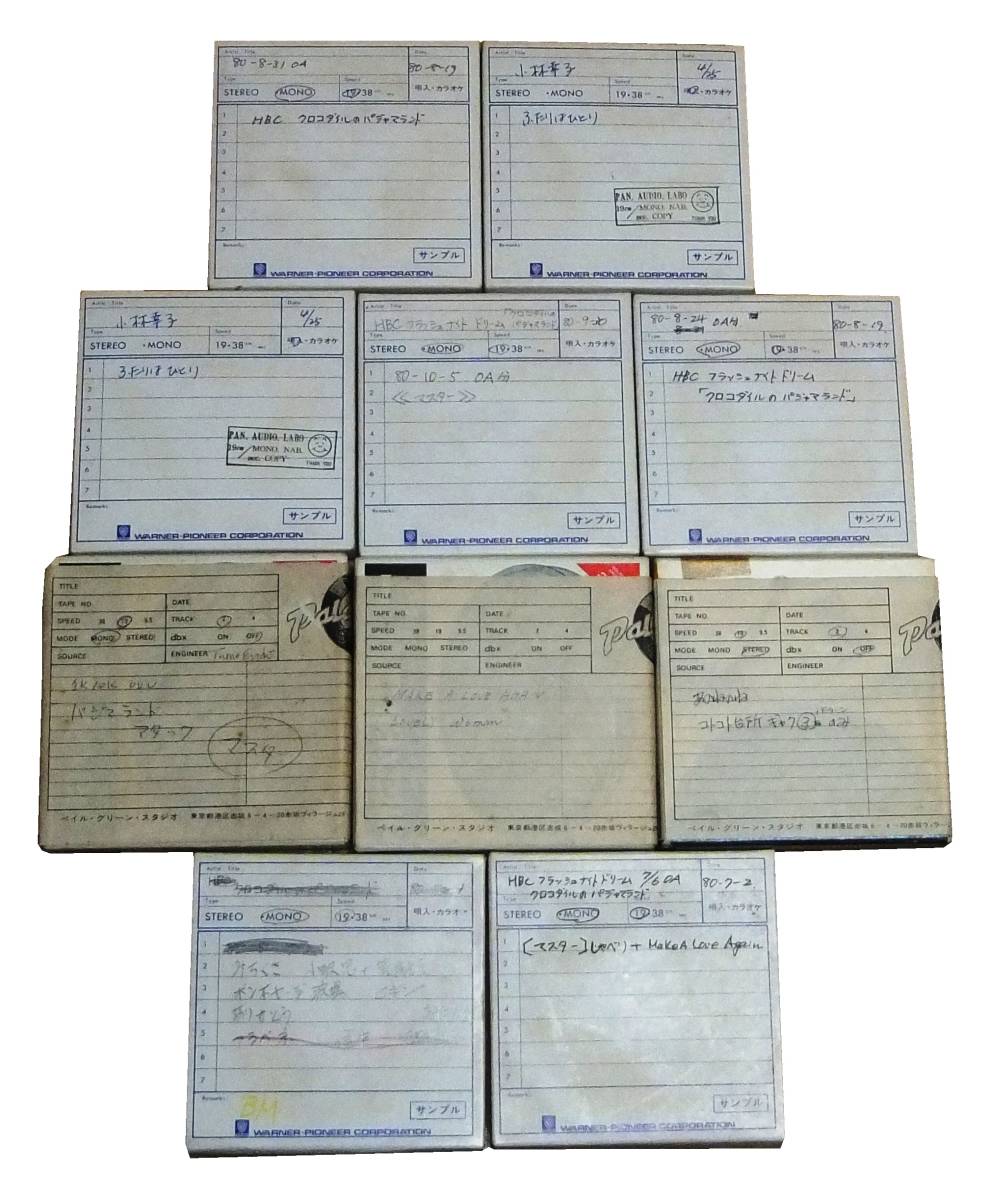 Artist・Title
Date
80-8-31 OA
80-8-19
Type
Speed
STEREO MONO 19・38 唄入・カラオケ
1 HBC クロコダイルのパジャマランド
2
3
4
5
6
7
Remarks
サンプル
WARNER-PIONEER CORPORATION
Artist・Title
Date
小林幸子
4/25
Type
Speed
STEREO ・MONO 19・38 唄入・カラオケ
1 ふたりはひとり
2
3
4
5
6
7
PAN. AUDIO. LABO
19cm/MONO. NAB.
rec. COPY
THANK YOU
Remarks
サンプル
WARNER-PIONEER CORPORATION
Artist・Title
Date
小林幸子
4/25
Type
Speed
STEREO ・MONO 19・38 唄入・カラオケ
1 ふたりはひとり
2
3
4
5
6
7
PAN. AUDIO. LABO
19cm/MONO. NAB.
rec. COPY
THANK YOU
Remarks
サンプル
WARNER-PIONEER CORPORATION
Artist・Title
Date
クロコダイルの
HBC フラッシュナイト ドリーム パジャマランド 80-9-20
Type
Speed
STEREO ・MONO 19・38 唄入・カラオケ
1 80-10-5 OA分
2 《マスター》
3
4
5
6
7
Remarks
サンプル
WARNER-PIONEER CORPORATION
Artist・Title
Date
80-8-24 OA分
80-8-19
Type
Speed
STEREO ・MONO 19・38 唄入・カラオケ
1 HBC フラッシュナイトドリーム
2 「クロコダイルの パジャマランド」
3
4
5
6
7
Remarks
サンプル
WARNER-PIONEER CORPORATION
TITLE
TAPE NO. DATE
SPEED 38 19 9.5 TRACK 2 4
MODE MONO STEREO dbx ON OFF
SOURCE ENGINEER
パジマランド
アタック
マスター
ペイル・グリーン・スタジオ 東京都港区赤坂6-4-20赤坂ヴィラージュ2F
TITLE
TAPE NO. DATE
SPEED 38 19 9.5 TRACK 2 4
MODE MONO STEREO dbx ON OFF
SOURCE ENGINEER
MAKE A LOVE AGAIN
ペイル・グリーン・スタジオ 東京都港区赤坂6-4-20赤坂ヴィラージュ2F
TITLE
TAPE NO. DATE
SPEED 38 19 9.5 TRACK 2 4
MODE MONO STEREO dbx ON OFF
SOURCE ENGINEER
コトコト台所
ペイル・グリーン・スタジオ 東京都港区赤坂6-4-20赤坂ヴィ
Artist・Title
Date
HBC
クロコダイルのパジャマランド
Type
Speed
STEREO ・MONO 19・38 唄入・カラオケ
1
2
3
4 ありがとう
5
6
7
Remarks
BM
サンプル
WARNER-PIONEER CORPORATION
Artist・Title
Date
HBC フラッシュナイトドリーム 7/6 OA
クロコダイルの パジャマランド
80-7-2
Type
Speed
STEREO ・MONO 19・38 唄入・カラオケ
1 [マスター]しゃべり + Make A Love Again
2
3
4
5
6
7
Remarks
サンプル
WARNER-PIONEER CORPORATION